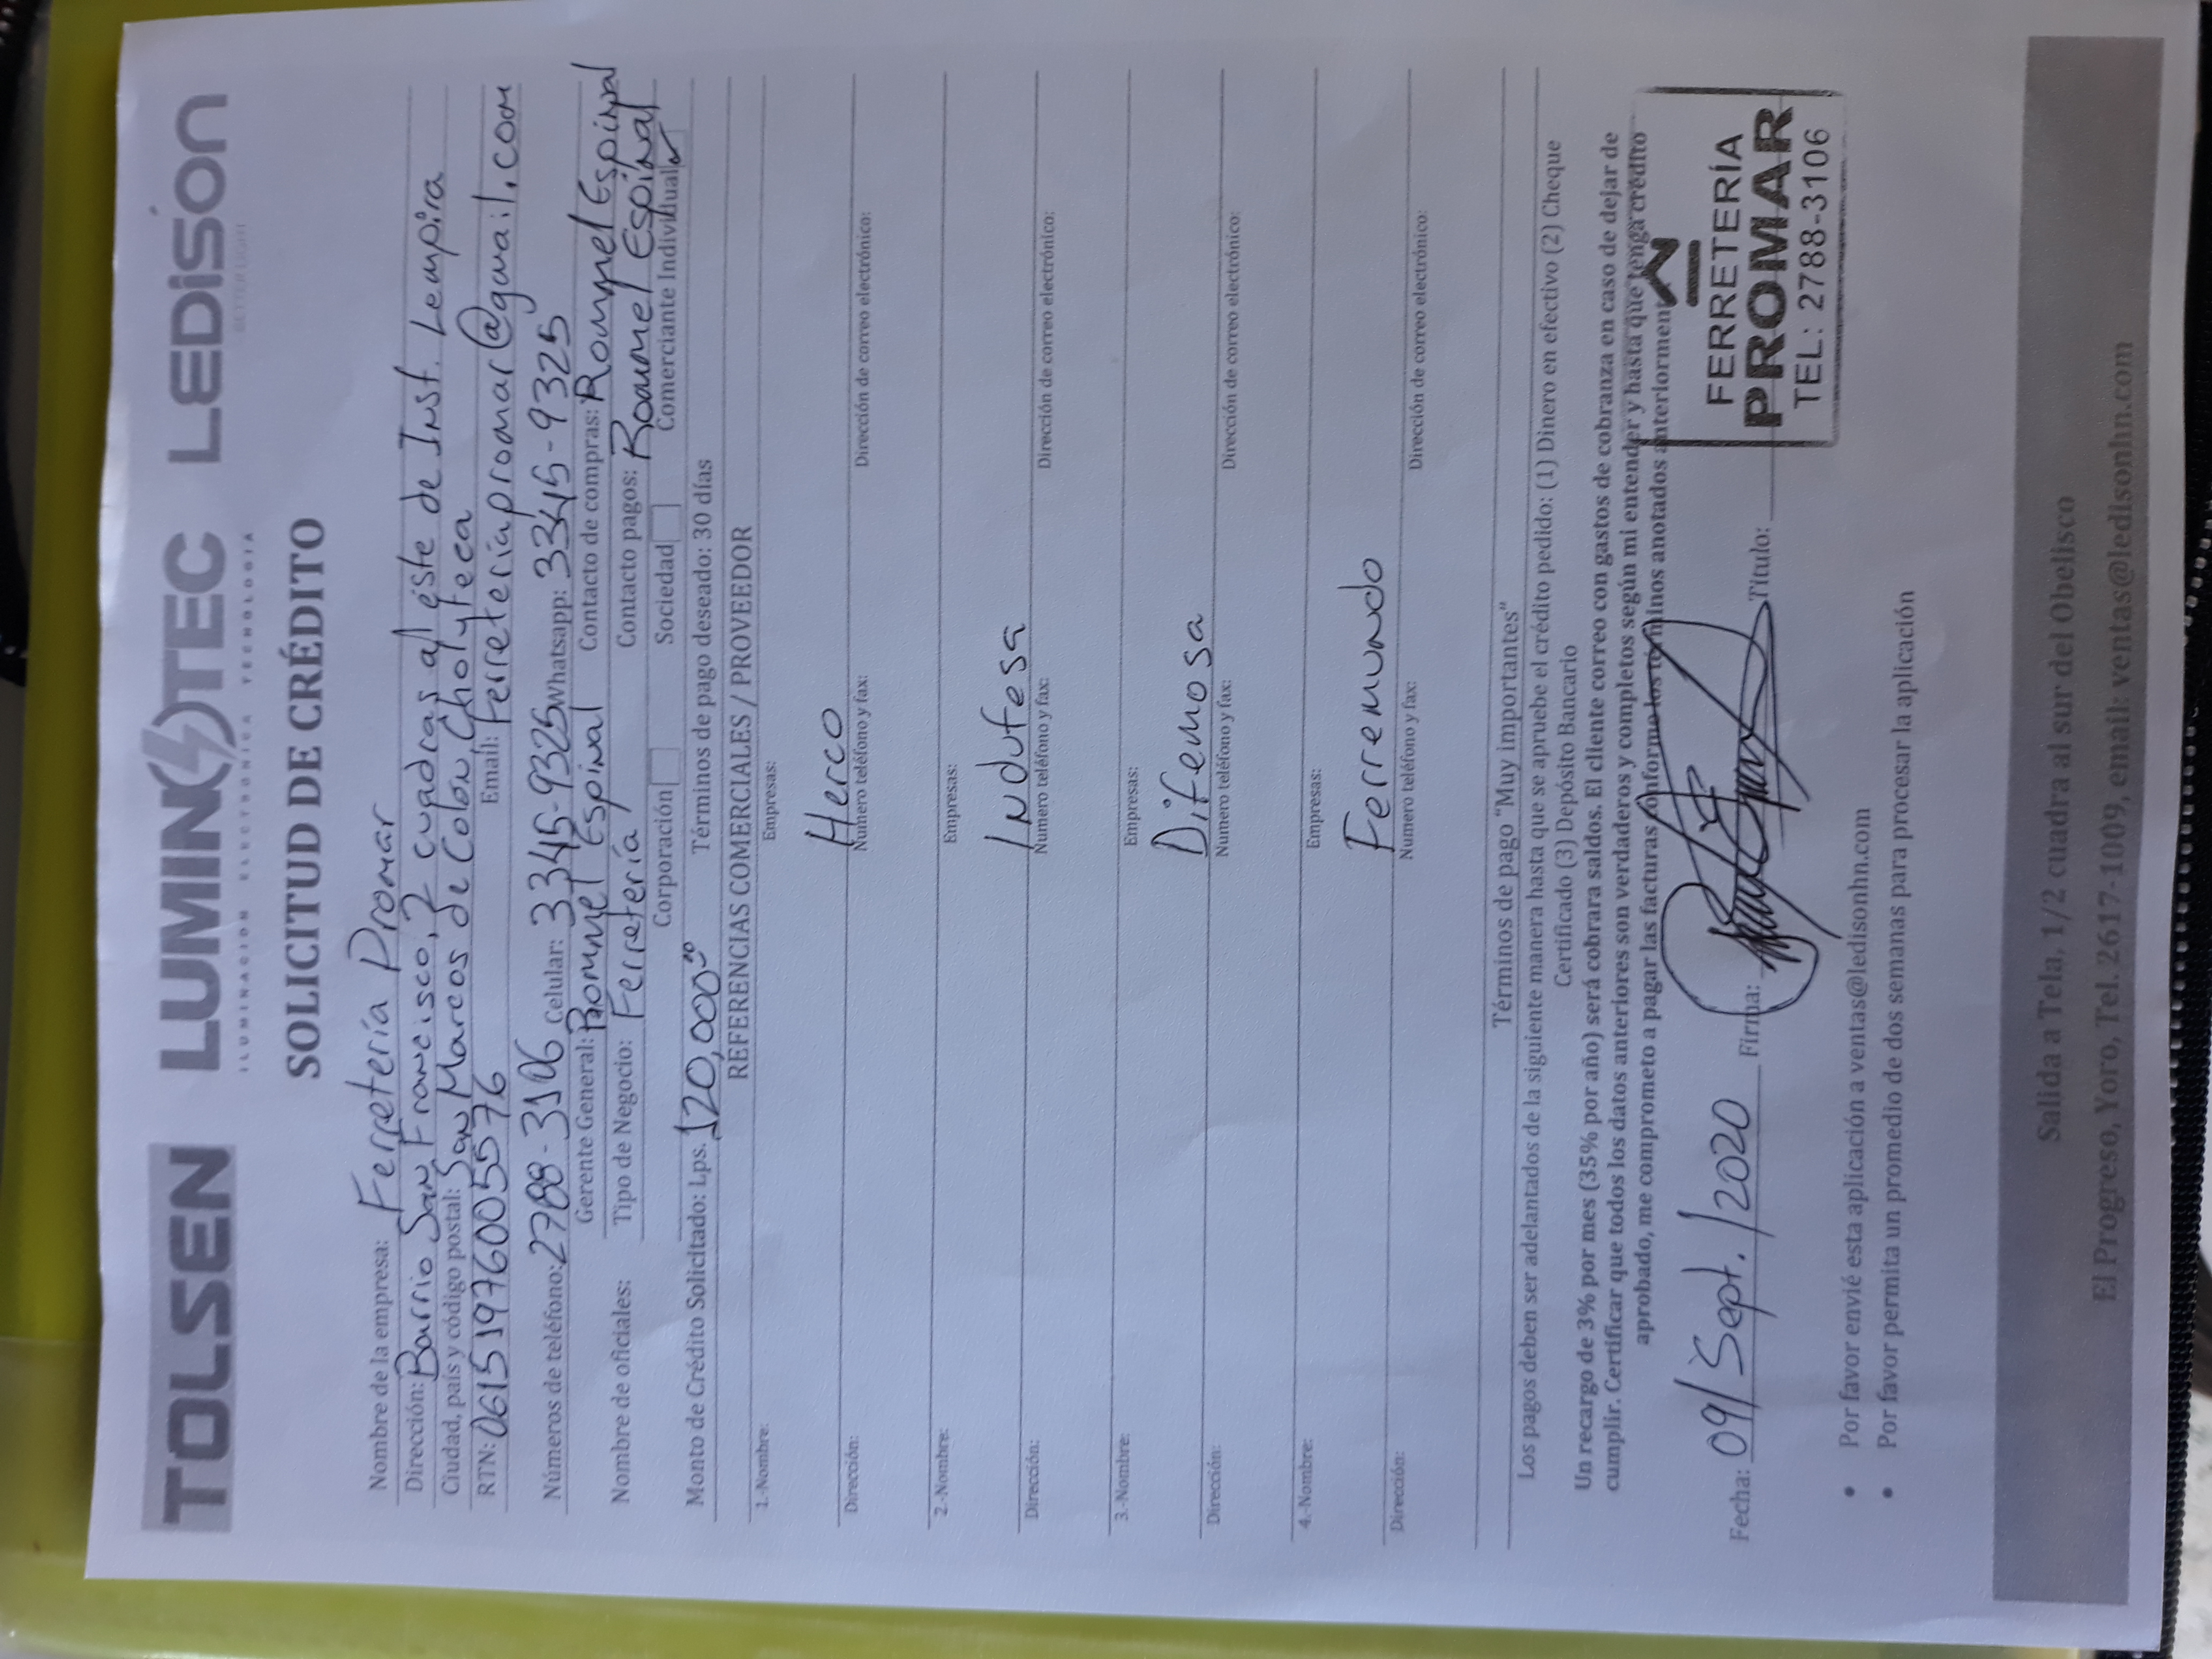 TOLSEN LUMINOTEC LEDISON
ILUMINACION ELECTRONICA TECNOLOGIA BETTER LIGHT
SOLICITUD DE CRÉDITO
Nombre de la empresa: Ferretería Promar
Dirección: Barrio San Francisco, 2 cuadras al este de Inst. Lempira
Ciudad, país y código postal: San Marcos de Colón, Choluteca
RTN: 06151976005576 Email: ferreteriapromar@gmail.com
Números de teléfono: 2788-3106 Celular: 3345-9325 Whatsapp: 3345-9325
Gerente General: Rommel Espinal Contacto de compras: Rommel Espinal
Nombre de oficiales: Tipo de Negocio: Ferretería Contacto pagos: Rommel Espinal
Corporación Sociedad Comerciante Individual
Monto de Crédito Solicitado: Lps. 120,000.00 Términos de pago deseado: 30 días
REFERENCIAS COMERCIALES / PROVEEDOR
1.-Nombre: Empresas:
Herco
Dirección: Numero teléfono y fax: Dirección de correo electrónico:
2.-Nombre: Empresas:
Indufesa
Dirección: Numero teléfono y fax: Dirección de correo electrónico:
3.-Nombre: Empresas:
Difemosa
Dirección: Numero teléfono y fax: Dirección de correo electrónico:
4.-Nombre: Empresas:
Ferremundo
Dirección: Numero teléfono y fax: Dirección de correo electrónico:
Términos de pago “Muy importantes”
Los pagos deben ser adelantados de la siguiente manera hasta que se apruebe el crédito pedido: (1) Dinero en efectivo (2) Cheque
Certificado (3) Depósito Bancario
Un recargo de 3% por mes (35% por año) será cobrara saldos. El cliente correo con gastos de cobranza en caso de dejar de
cumplir. Certificar que todos los datos anteriores son verdaderos y completos según mi entender y hasta que tenga crédito
aprobado, me comprometo a pagar las facturas conforme los términos anotados anteriormente.
Fecha: 09/Sept./2020 Firma: Titulo:
FERRETERÍA
PROMAR
TEL: 2788-3106
• Por favor envié esta aplicación a ventas@ledisonhn.com
• Por favor permita un promedio de dos semanas para procesar la aplicación
Salida a Tela, 1/2 cuadra al sur del Obelisco
El Progreso, Yoro, Tel. 2617-1009, email: ventas@ledisonhn.com